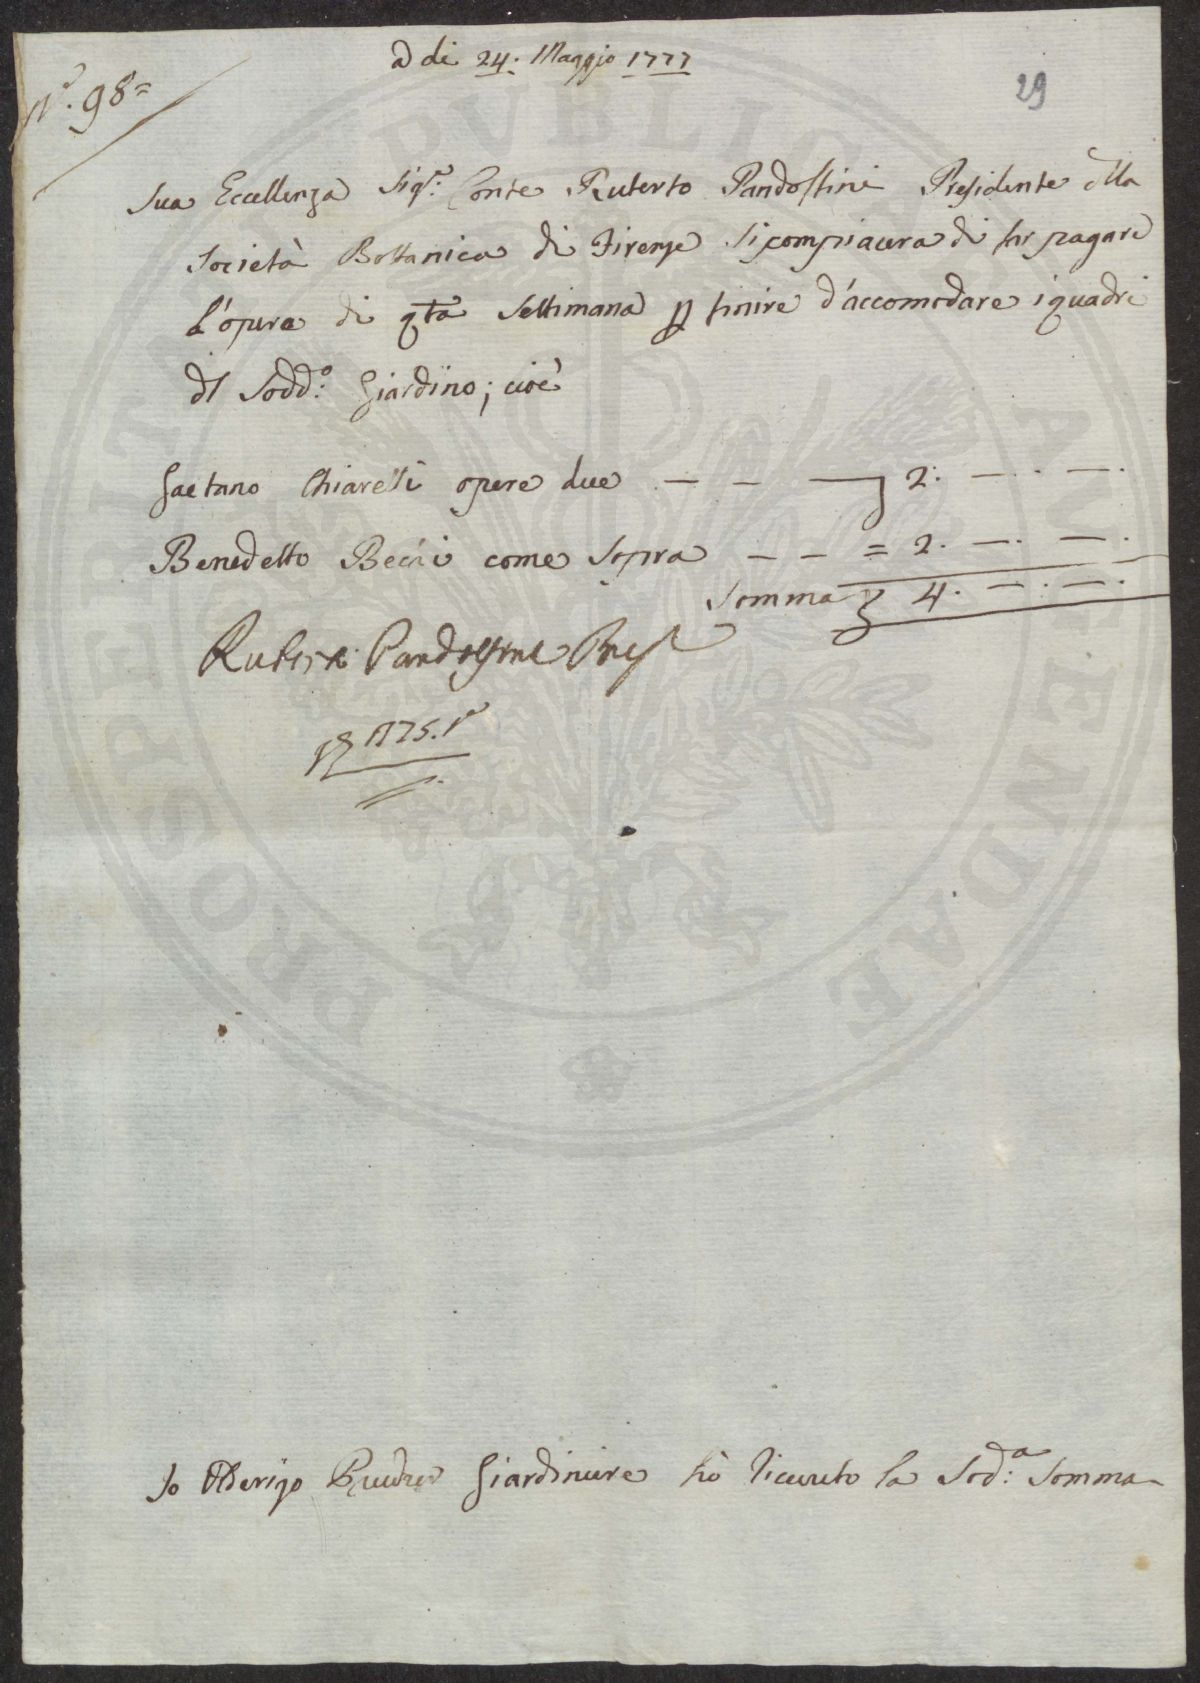 N.° 98=
A di 24. Maggio 1777
29
Sua Eccellenza Sig.re Conte Ruberto Pandolfini Presidente dlla
Società Bottanica di Firenze si compiacera di far pagare
L'opera di qta Settimana p finire d'accomodare i quadri
dl Sodd.° Giardino; cioè
Gaetano Chiarelli opere due — — — 2. —. —.
Benedetto Becni come sopra — — = 2. —. —.
Somma 4. —. —.
Ruberto Pandolfini Pres
1775.
Io Olderigo Giardiniere hò ricevuto la Sod:a Somma
PUBLICAE
AUGENDAE
PROSPERITATI